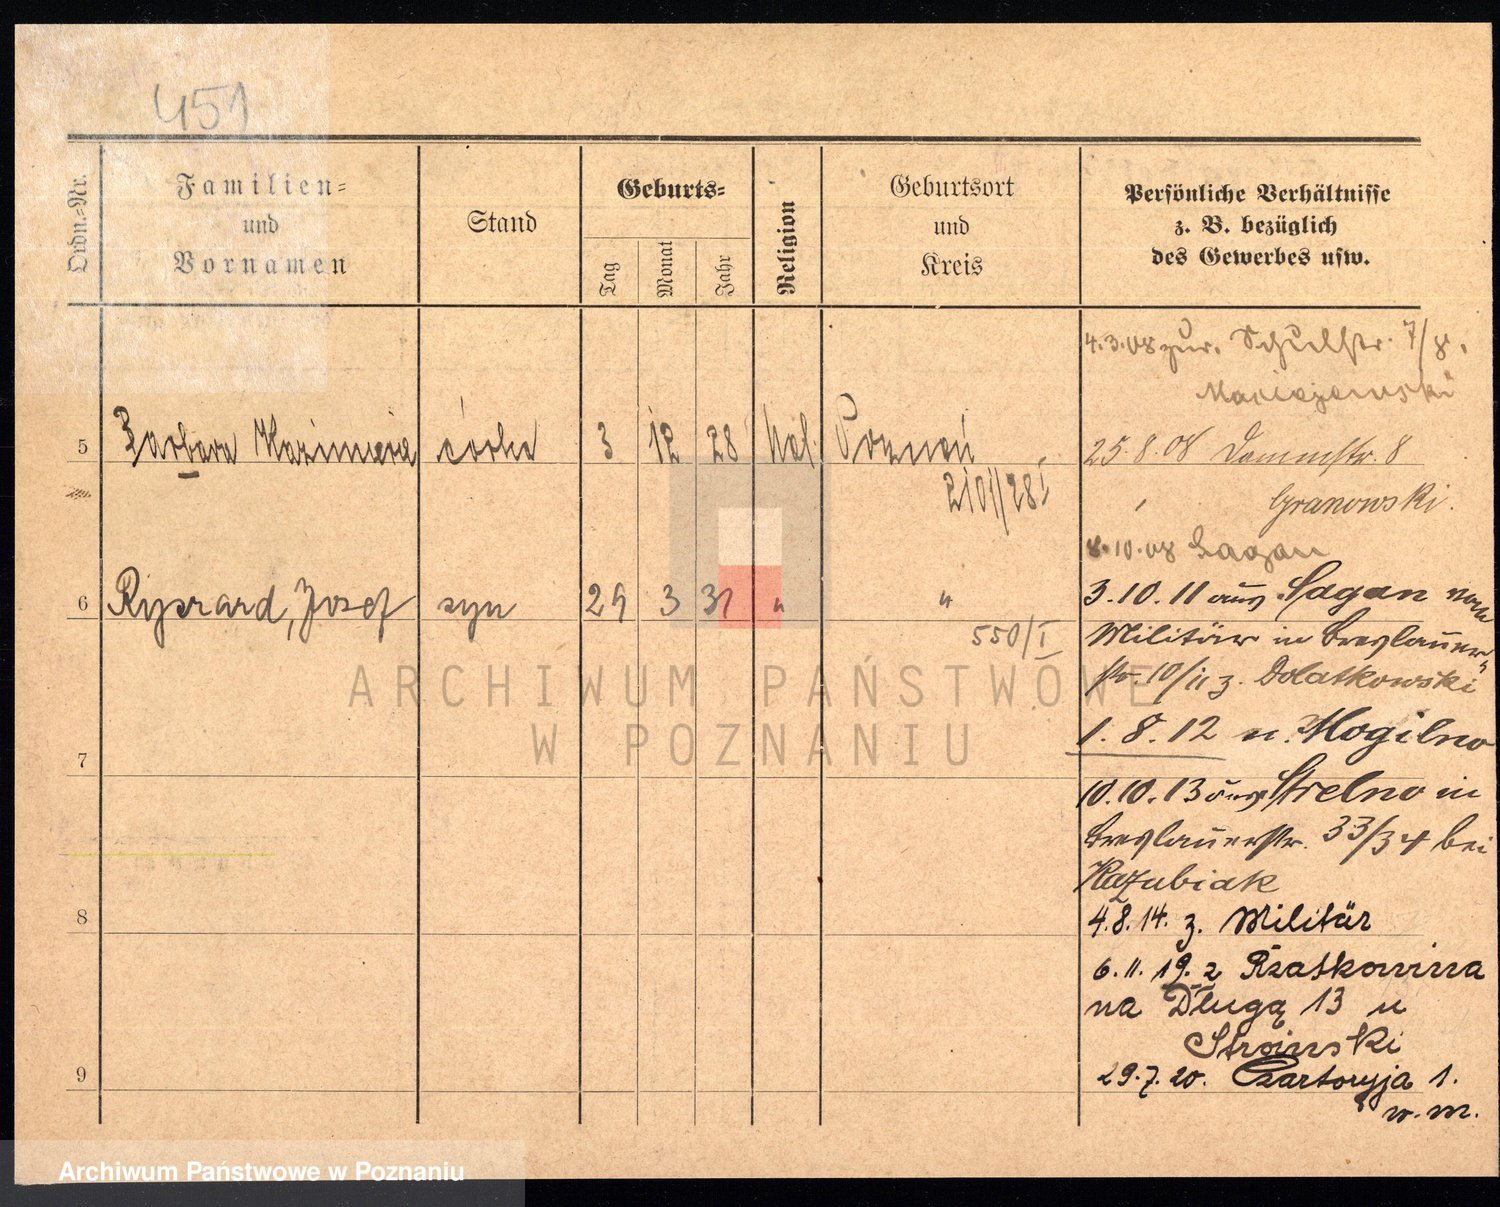 451
Ordn.-Nr.
Familien-
und
Vornamen
Stand
Geburts-
Tag
Monat
Jahr
Religion
Geburtsort
und
Kreis
Persönliche Verhältnisse
z. B. bezüglich
des Gewerbes usw.
4.3.08 zur. Schulstr. 7/8.
Maciejewski
5 Barbara Kazimiera córka 3 12 28 kat. Poznań
2101/28 I
25.8.08 Dammstr. 8
Granowski.
8.10.08 Sagan
6 Ryszard, Josef syn 29 3 31 " "
550/I
3.10.11 aus Sagan vom
Militär in Breslauer-
str. 10/11 z. Dolatkowski
1.8.12 n. Mogilno
7
10.10.13 aus Strelno in
Breslauerstr. 33/34 bei
Kazubiak
8
4.8.14. z. Militär
6.11.19. z Rzatkowina
na Długą 13 u
Stroinski
9
29.7.20. Czartoryja 1.
w. m.
ARCHIWUM PAŃSTWOWE
W POZNANIU
Archiwum Państwowe w Poznaniu